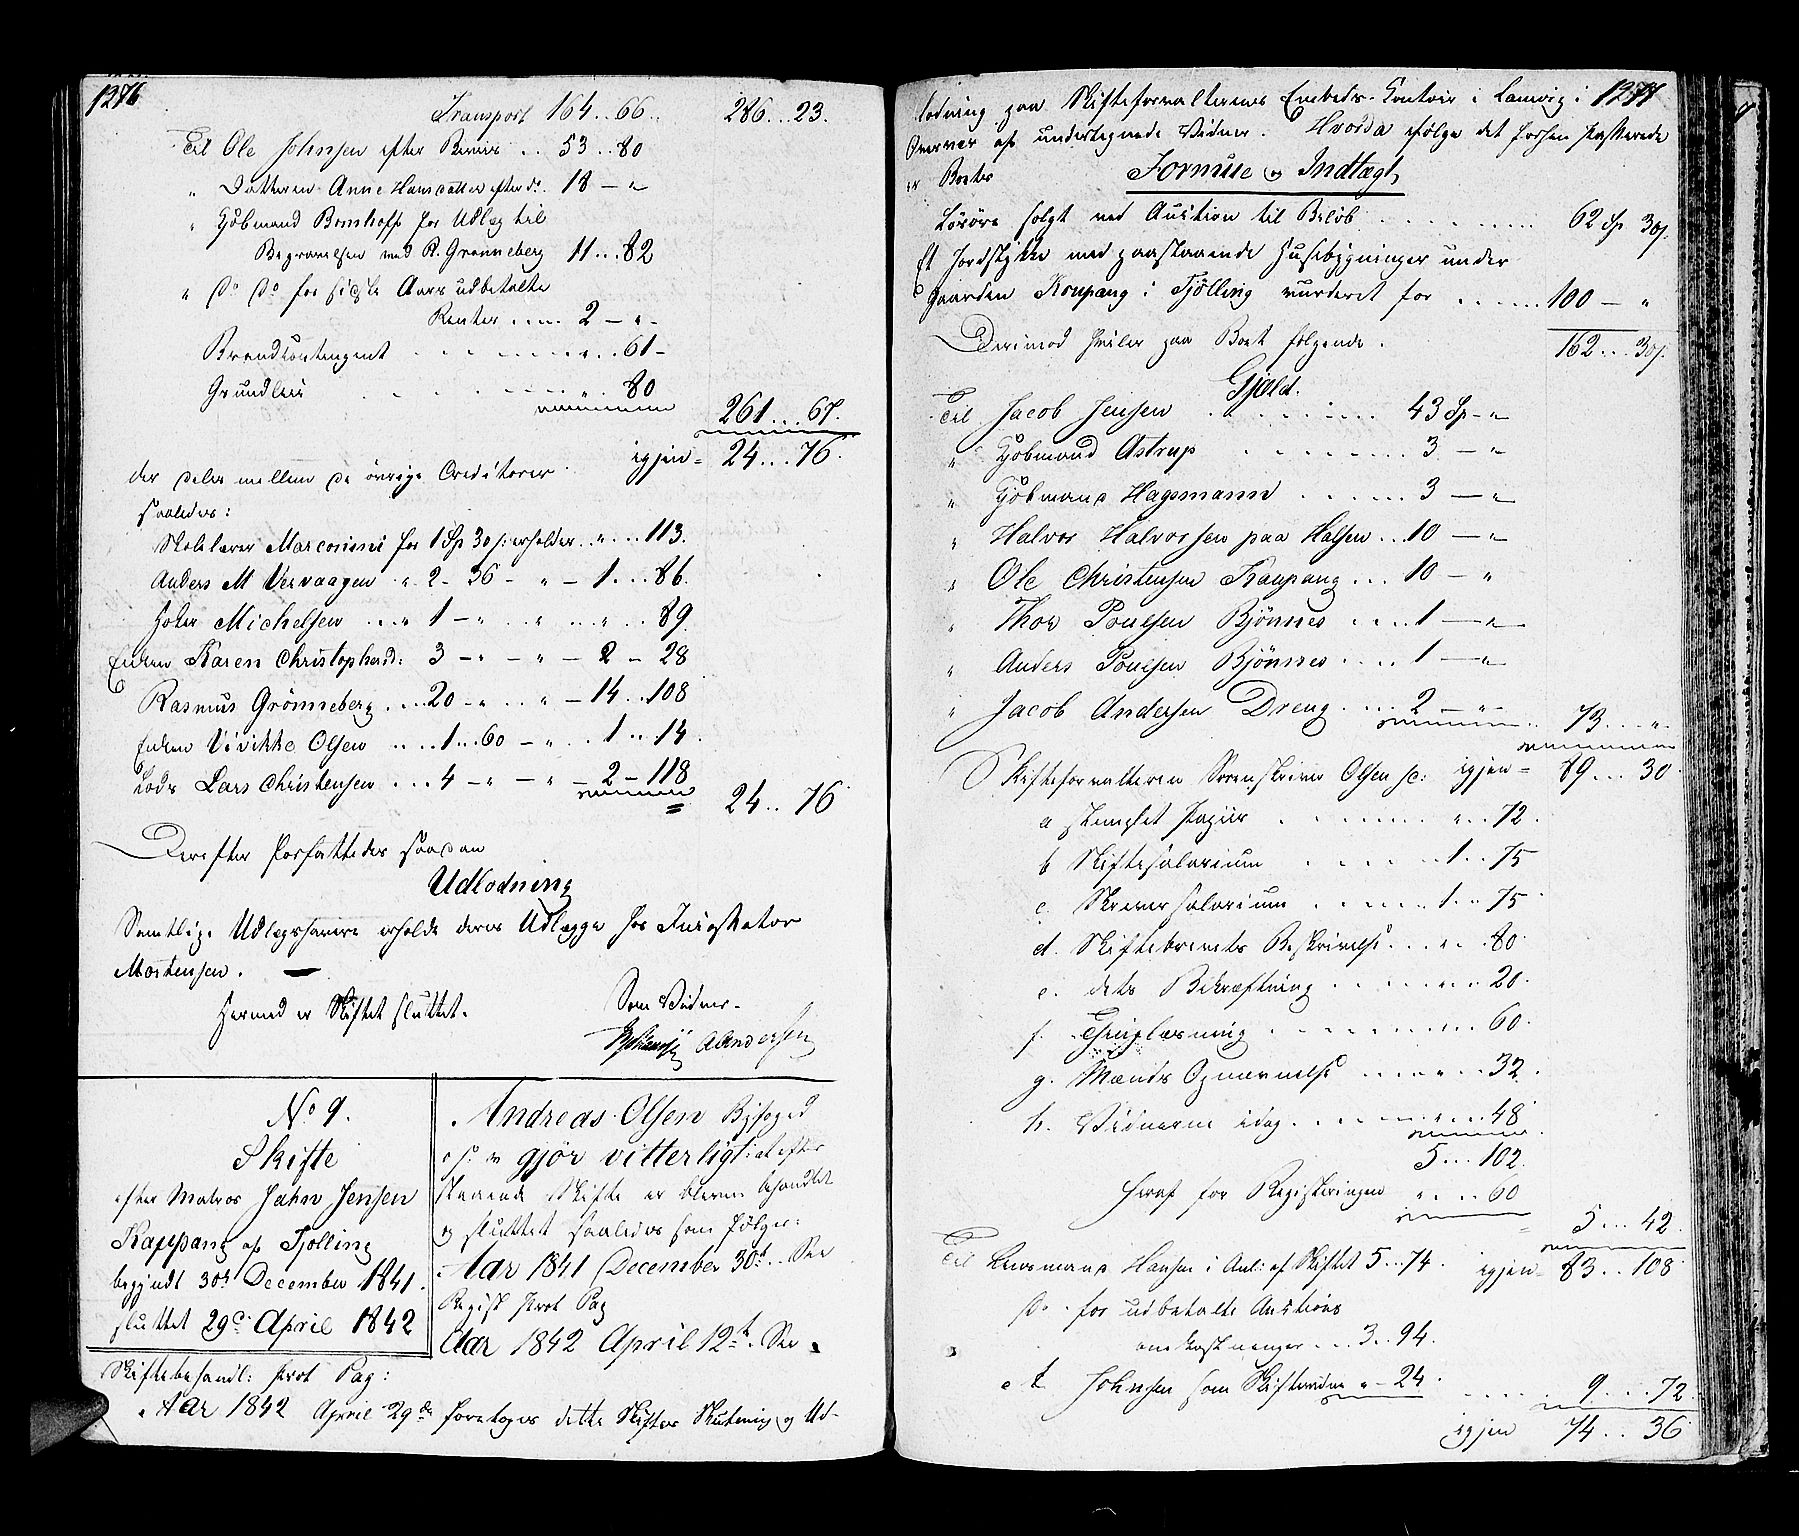 1276
Transport 164..66.. 286...23.
Til Ole Johnsen efter Beviis .. 53..80
" Datteren Anne Hansdatter efter do. 18 - "
" Kjøbmand Bomhoff for Udlæg til
Begravelsen med R. Grønneberg 11...82
" Do Do for sidste Aars udbetalte
Renter ..... 2 - " -
Brandcontingent . . . . . . . . " .. 61 -
Grundleie . . . . . . . " .. 80
261...67.
igjen = 24...76.
der deles mellem de øvrige Creditorer
saaledes:
Skolelærer Marconini for 1 Sp 30 s: erholder .. " ... 113.
Anders M Vervaagen " 2 - 36 - " - 1...86.
Høker Michelsen ... " 1 - " .. " ... " .. 89
Enken Karen Christophersd: 3 - " - " - 2 - 28
Rasmus Grønneberg ... 20 - " .. " - 14..108
Enken Vivikke Olsen ... 1..60 - " .. 1..14.
Lods Lars Christensen ... 4 - " - " - 2 - 118
= 24..76
Derefter forfattedes saadan
Udlodning
Samtlige Udlægshavere erholde deres Udlægge hos
Mortensen. —
Hermed er Skiftet sluttet.
Som Vidner.
A Andersen
No 9.
Skifte
efter Matros Jahn Jensen
Kaupang af Tjølling
begyndt 30d December 1841.
sluttet 29de April 1842
Andreas Olsen Byfoged
o. s. v. gjør vitterligt: at efter
staaende Skifte er bleven behandlet
og sluttet saaledes som følger:
Aar 1841 December 30t.. See
Regist prot Pag
Aar 1842 April 12t. See
Skiftebehandl: prot Pag:
Aar 1842 April 29de foretoges dette Skiftes Slutning og Ud-
1277
lodning paa Skifteforvalterens Embeds-Contoir i Laurvig i
Overvær af undertegnede Vidner. Hvorda følge det forhen passerede
er Boets
Formue og Indtægt,
Løsøre solgt ved Auction til Beløb . . . . . . . . 62 Sp 30 s.
Et Jordstykke med paastaaende Huusebygninger under
Gaarden Koupang i Tjølling vurderet for ...... 100 - "
162...30 s.
Derimod hviler paa Boet følgende.
Gjæld.
Til Jacob Jensen . . . . . . . 43 Sp - "
" Kjøbmand Astrup . . . . . . . 3 - "
" Kjøbmand Hagemann . . . . . . 3 - "
" Halvor Halvorsen paa Halsen .. 10 - "
" Ole Christensen Kaupang ... 10 - "
" Thor Poulsen Bjønnes .... 1 - "
" Anders Poulsen Bjønnes .... 1 - "
" Jacob Andersen Dreng .... 2 - " .. 73... "
Skifteforvalteren Sorenskriver Olsen sc: igjen = 89...30
a stemplet Papiir . . . . . . . " .. 72.
b Skiftesalarium . . . . . . 1..75
c. Skriversalarium . . . . . . 1..75
d. Skiftebrevets Beskrivelse ... " .. 80.
e. dets Bekræftning . . . . . . " .. 20.
f. Thinglæsning . . . . . . . " .. 60.
g. Mænds Opnævnelse ..... " .. 32.
h. Vidnerne idag. . . . . . " .. 48
5...102.
heraf for Registeringen " ... 60
5...42.
Til Lensmand Hansen i Anl: af Skiftet 5...74. igjen = 83..108
Do. for udbetalte Auctions
omkostninger ... 3..94.
Johnsen som Skiftevidne " - 24. ..... 9....72.
igjen 74...36